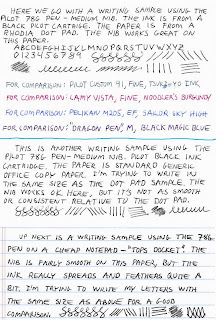 HERE WE GO WITH A WRITING SAMPLE USING THE
PILOT 78G PEN - MEDIUM NIB. THE INK IS FROM A
BLACK PILOT CARTRIDGE. THE PAPER IS FROM A
RHODIA DOT PAD. THE NIB WORKS GREAT ON
THIS PAPER.
ABCDEFGHIJKLMNOPQRSTUVWXYZ
0123456789
FOR COMPARISON: PILOT CUSTOM 91, FINE, TSUKUSHI INK
FOR COMPARISON: LAMY VISTA, FINE, NOODLER'S BURGUNDY
FOR COMPARISON: PELIKAN M205, EF, SAILOR SKY HIGH
FOR COMPARISON: "DRAGON PEN", M, BLACK MAGIC BLUE
THIS IS ANOTHER WRITING SAMPLE USING THE
PILOT 78G PEN - MEDIUM NIB. PILOT BLACK INK
CARTRIDGE. THE PAPER IS STANDARD GENERAL
OFFICE COPY PAPER. I'M TRYING TO WRITE IN
THE SAME SIZE AS THE DOT PAD SAMPLE. THE
NIB WORKS OK HERE, BUT IT'S NOT AS SMOOTH
OR CONSISTENT RELATIVE TO THE DOT PAD.
UP NEXT IS A WRITING SAMPLE USING THE 78G
PEN ON A CHEAP NOTEPAD - "TOPS DOCKET". THE
NIB IS FAIRLY SMOOTH ON THIS PAPER, BUT THE
INK REALLY SPREADS AND FEATHERS QUITE A
BIT. I'M TRYING TO WRITE MY LETTERS WITH
THE SAME SIZE AS ABOVE FOR A GOOD
COMPARISON.